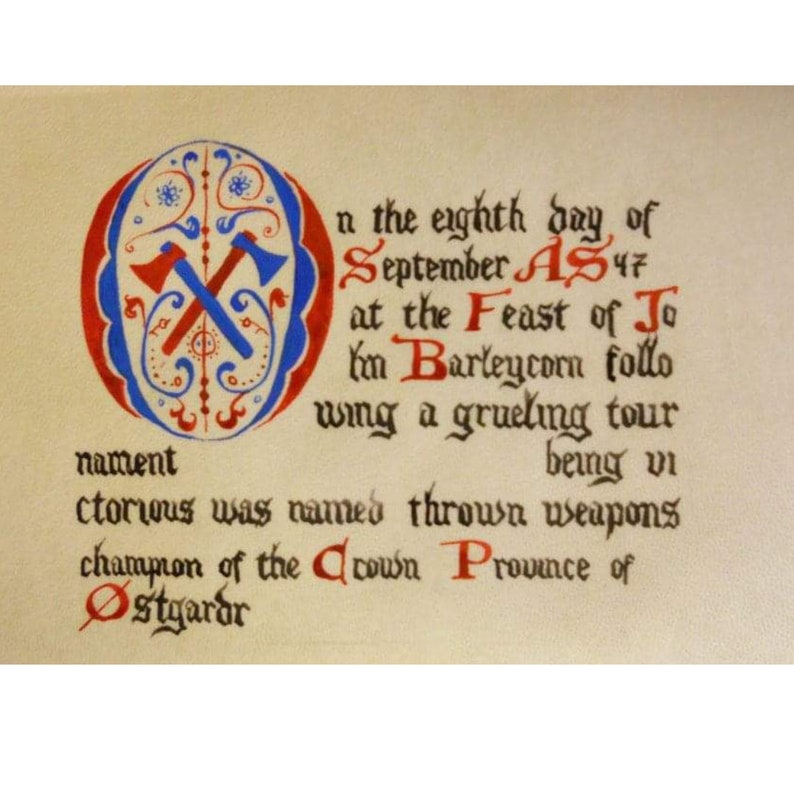 On the eighth day of
September AS 47
at the Feast of Jo
hn Barleycorn follo
wing a grueling tour
nament being vi
ctorious was named thrown weapons
champion of the Crown Province of
Østgardr